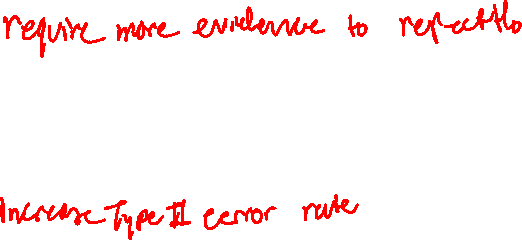 require more evidence to reject Ho
Increase Type II error rate